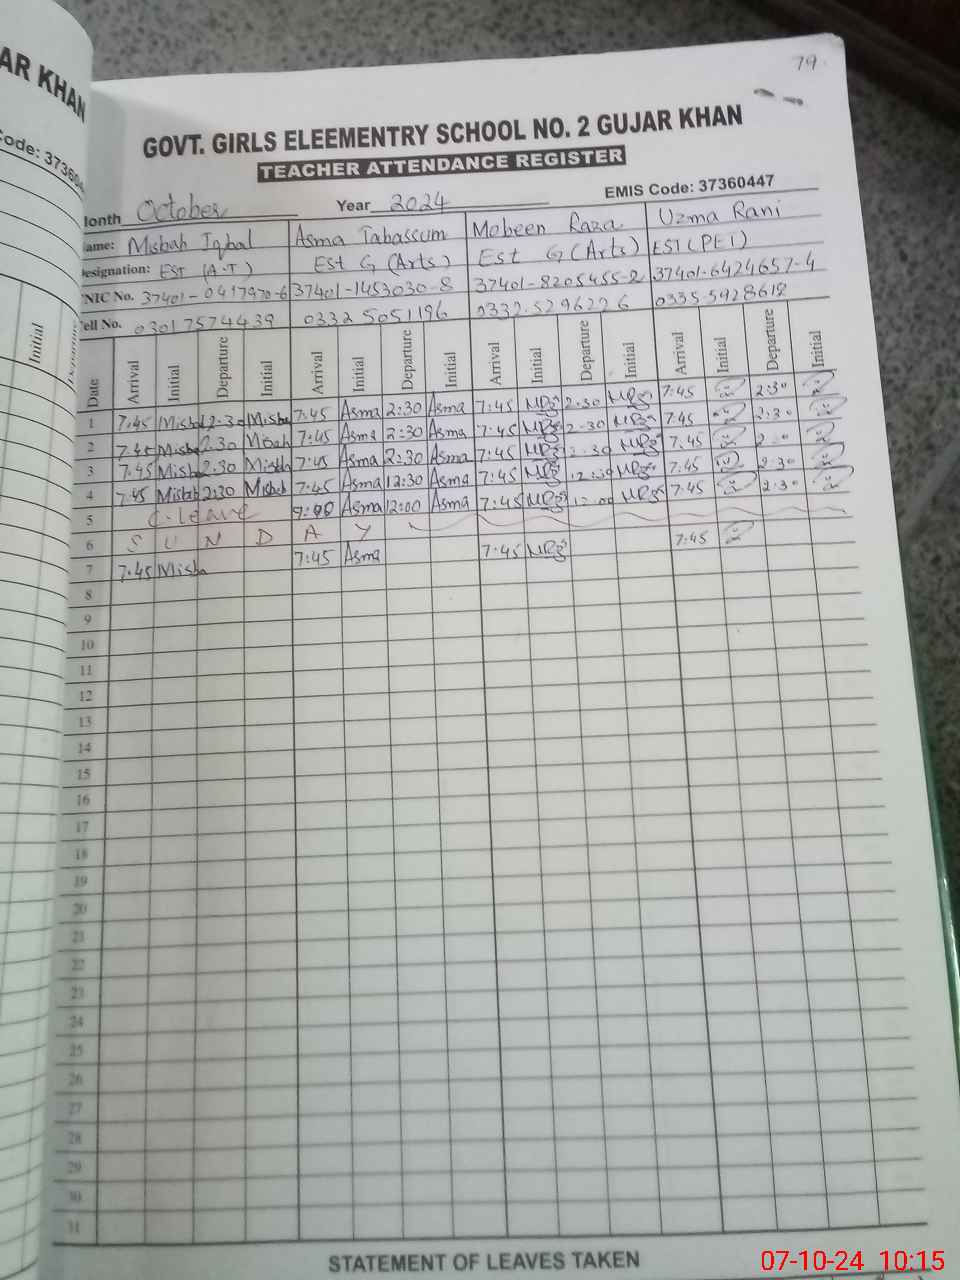 AR KHAN
Code: 37360
Initial
79
GOVT. GIRLS ELEEMENTRY SCHOOL NO. 2 GUJAR KHAN
TEACHER ATTENDANCE REGISTER
EMIS Code: 37360447
onth October Year 2024
ame: Misbah Iqbal Asma Tabassum Mobeen Raza Uzma Rani
esignation: EST (A.T) Est G (Arts) Est G (Arts) EST (PET)
NIC No. 37401-0417970-6 37401-1453030-8 37401-8205455-2 37401-6424657-4
ell No. 03017574439 0332 5051196 0332.5296226 0335.5928612
Date Arrival Initial Departure Initial Arrival Initial Departure Initial Arrival Initial Departure Initial Arrival Initial Departure Initial
1 7:45 Misbah 2:30 Misbah 7:45 Asma 2:30 Asma 7:45 2:30 7:45 2:30
2 7:45 Misbah 2:30 Misbah 7:45 Asma 2:30 Asma 7:45 2:30 7:45 2:30
3 7:45 Misbah 2:30 Misbah 7:45 Asma 2:30 Asma 7:45 7:45
4 7:45 Misbah 2:30 Misbah 7:45 Asma 12:30 Asma 7:45 12:30 7:45 2:30
5 C.leave Asma 12:00 Asma 7:45 12:00 7:45 2:30
6 S U N D A Y
7 7:45 Misba 7:45 Asma 7:45 7:45
8
9
10
11
12
13
14
15
16
17
18
19
20
21
22
23
24
25
26
27
28
29
30
31
STATEMENT OF LEAVES TAKEN
07-10-24 10:15